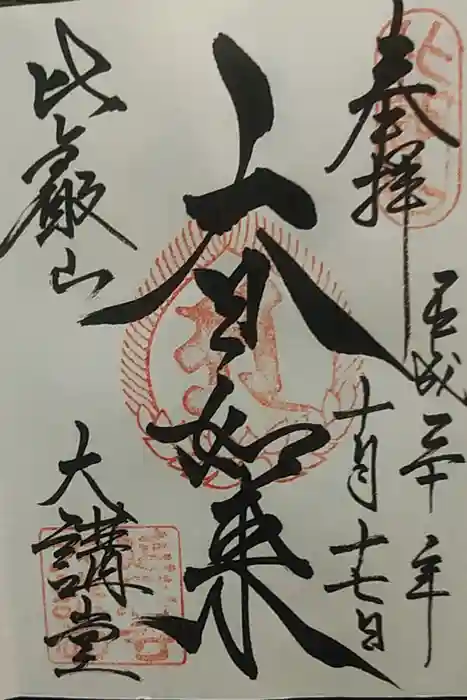 奉拝
平成三十年
十月十七日
大日如来
比叡山
大講堂